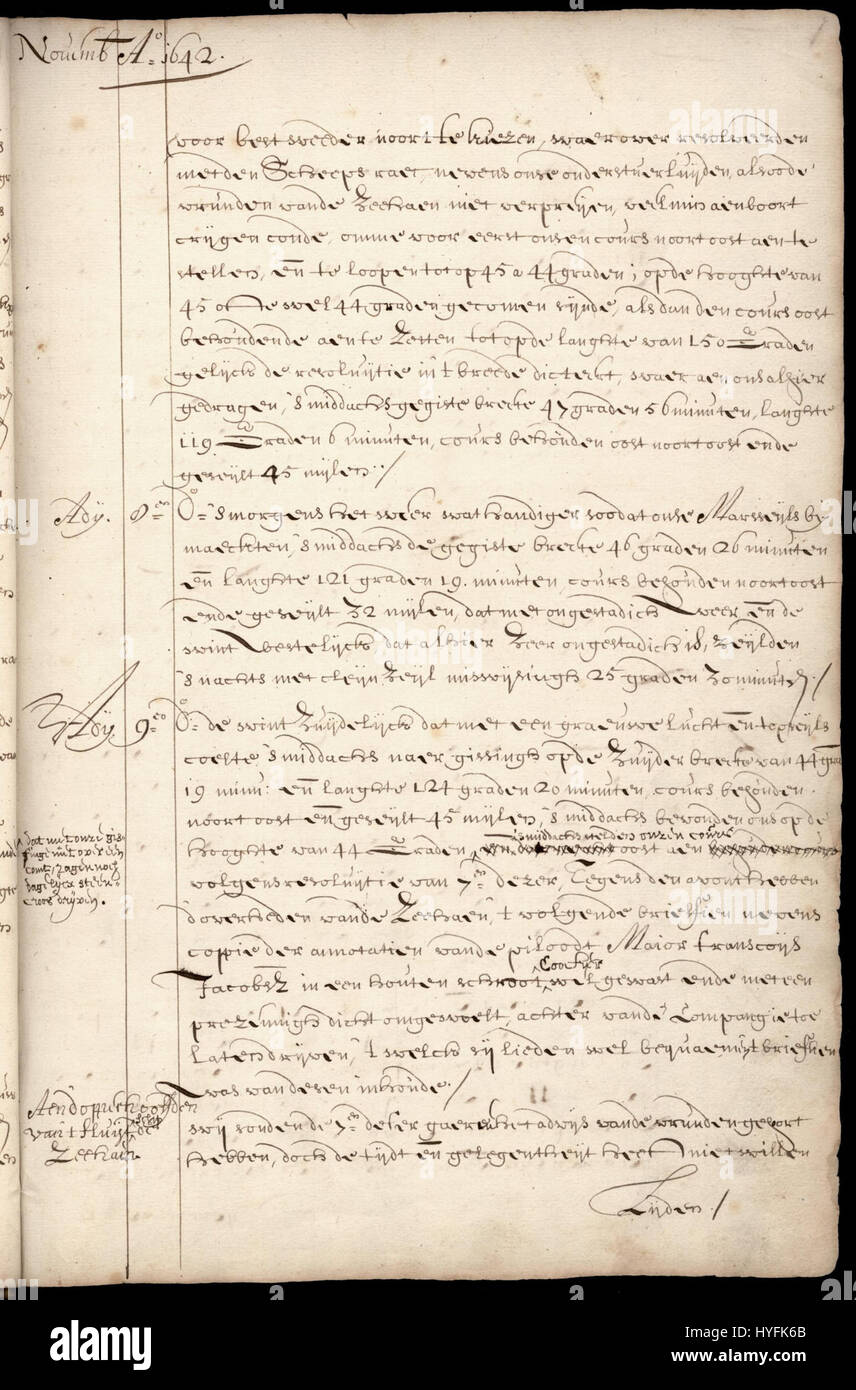 Novemb Aº 1642.
voor best weeder noort te kiezen, waer over resolveerden
met den Scheeps raet, nevens onse onderstuerluijden, alsoo de
vrunden vande Zeehaen niet verpreijen, veel min aen boort
crijgen conde, omme voor eerst onsen cours noortoost aen te
stellen, en te loopen tot op 45 a 44 graden, op de hooghte van
45 ofte wel 44 graden gecomen sijnde, als dan den cours oost
behoudende aen te Zetten tot op de langhte van 150 Graden
gelijck de resoluijtie in 't breede dicteert, waer aen ons alhier
gedragen, 's middachs gegiste breete 47 graden 56 minuten, langhte
119 Graden 6 minuten, cours behouden oost noortoost ende
geseijlt 45 mijlen /
Adÿ. 8en Dº 's morgens het weer wat handiger soo dat onse Marseijls bij
maeckten, 's middachs de gegiste breete 46 graden 26 minuten
en langhte 121 graden 19. minuten, cours behouden noortoost
ende geseijlt 32 mijlen, dat met ongestadich Weer en de
wint Westelijck, dat alhier Zeer ongestadich is, Zeijlden
's nachts met cleijn Zeijl miswijsingh 25 graden 30 minuten /
Adÿ. 9en Dº de wint Zuijdelijck dat met een graeuwe lucht en topseijls
coelte 's middachs naer gissingh op de Zuijder breete van 44 gra
19 minu: en langhte 124 graden 20 minuten, cours behouden
noortoost en geseijlt 45 mijlen, 's middachs bevonden ons op de
hooghte van 44 Graden, smiddachs stelden onzen coure oost aen
dat met onze gis
singe niet over een
comt, zagen noch
dagelijcx steen
croos drijven.
volgens resoluijtie van 7en dezer, Tegens den avont hebben
d'overheden vande Zeehaen, 't volgende brieffien nevens
copie der annotatien vande piloodt Maior francoijs
Jacobsz in een houten schroot Coocker wel gewast ende met een
prezenningh dicht omgewoelt, achter vande Compangie toe
laten drijven, 't welck sij lieden wel bequaem 't brieffien
was van desen inhoude /
Aen d'opperhoofden
van 't fluijtschip de
Zeehaen
wij souden den 7en deser gaeren het advijs vande vrunden gehoort
hebben, doch de tijdt en gelegentheijt heeft niet willen
Lijden /
alamy
HYFK6B
www.alamy.com